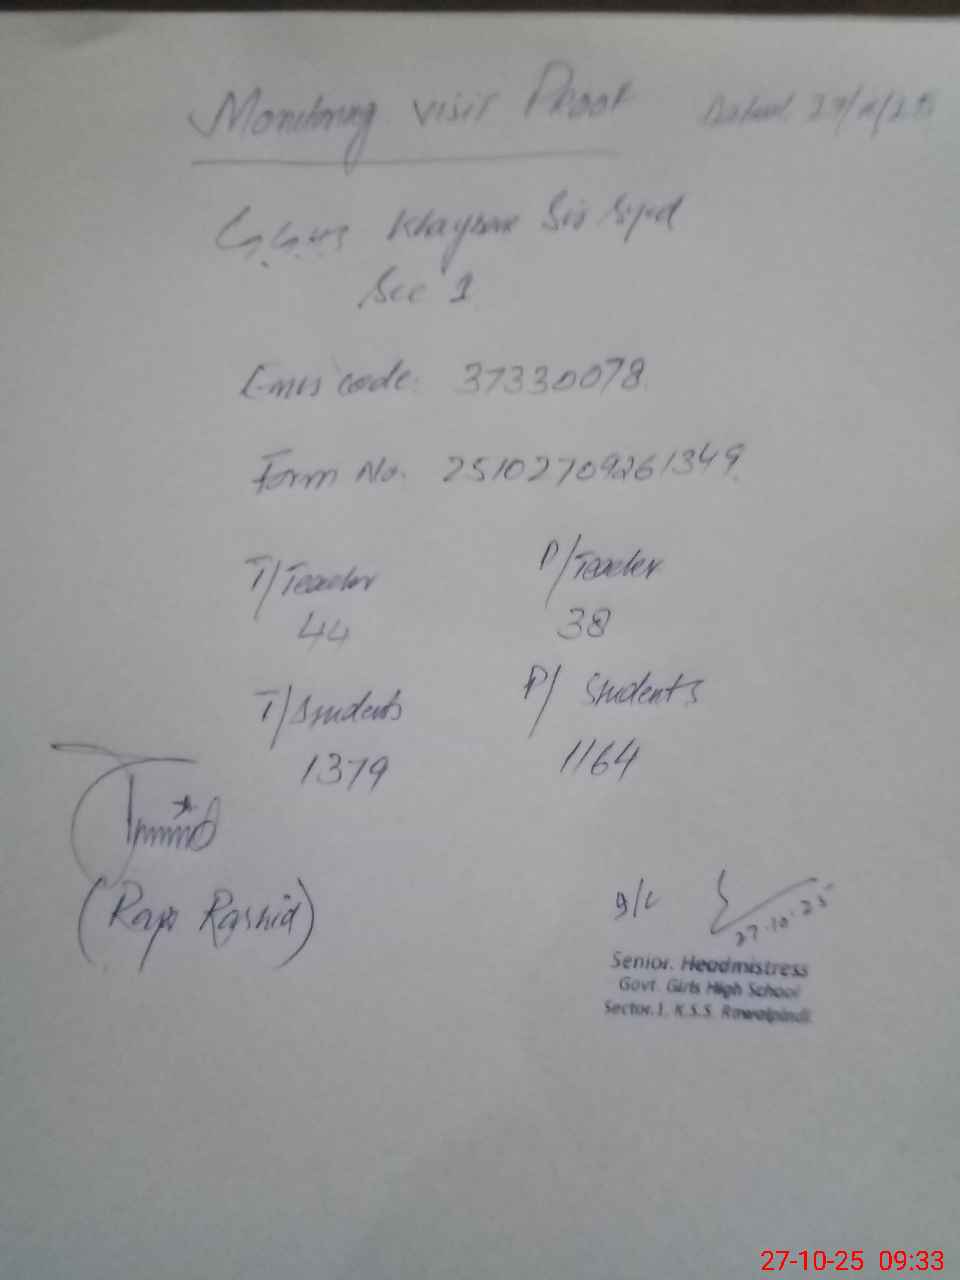 Monitoring visit Proof
Dated 27/10/25
G.G.H.S Khayban Sir Syed
Sec 1
Emis code: 37330078
Form No. 25102709261349
T/Teacher P/Teacher
44 38
T/Students P/ Students
1379 1164
(Raja Rashid)
27.10.25
Senior. Headmistress
Govt. Girls High School
Sector.1. K.S.S. Rawalpindi.
27-10-25 09:33